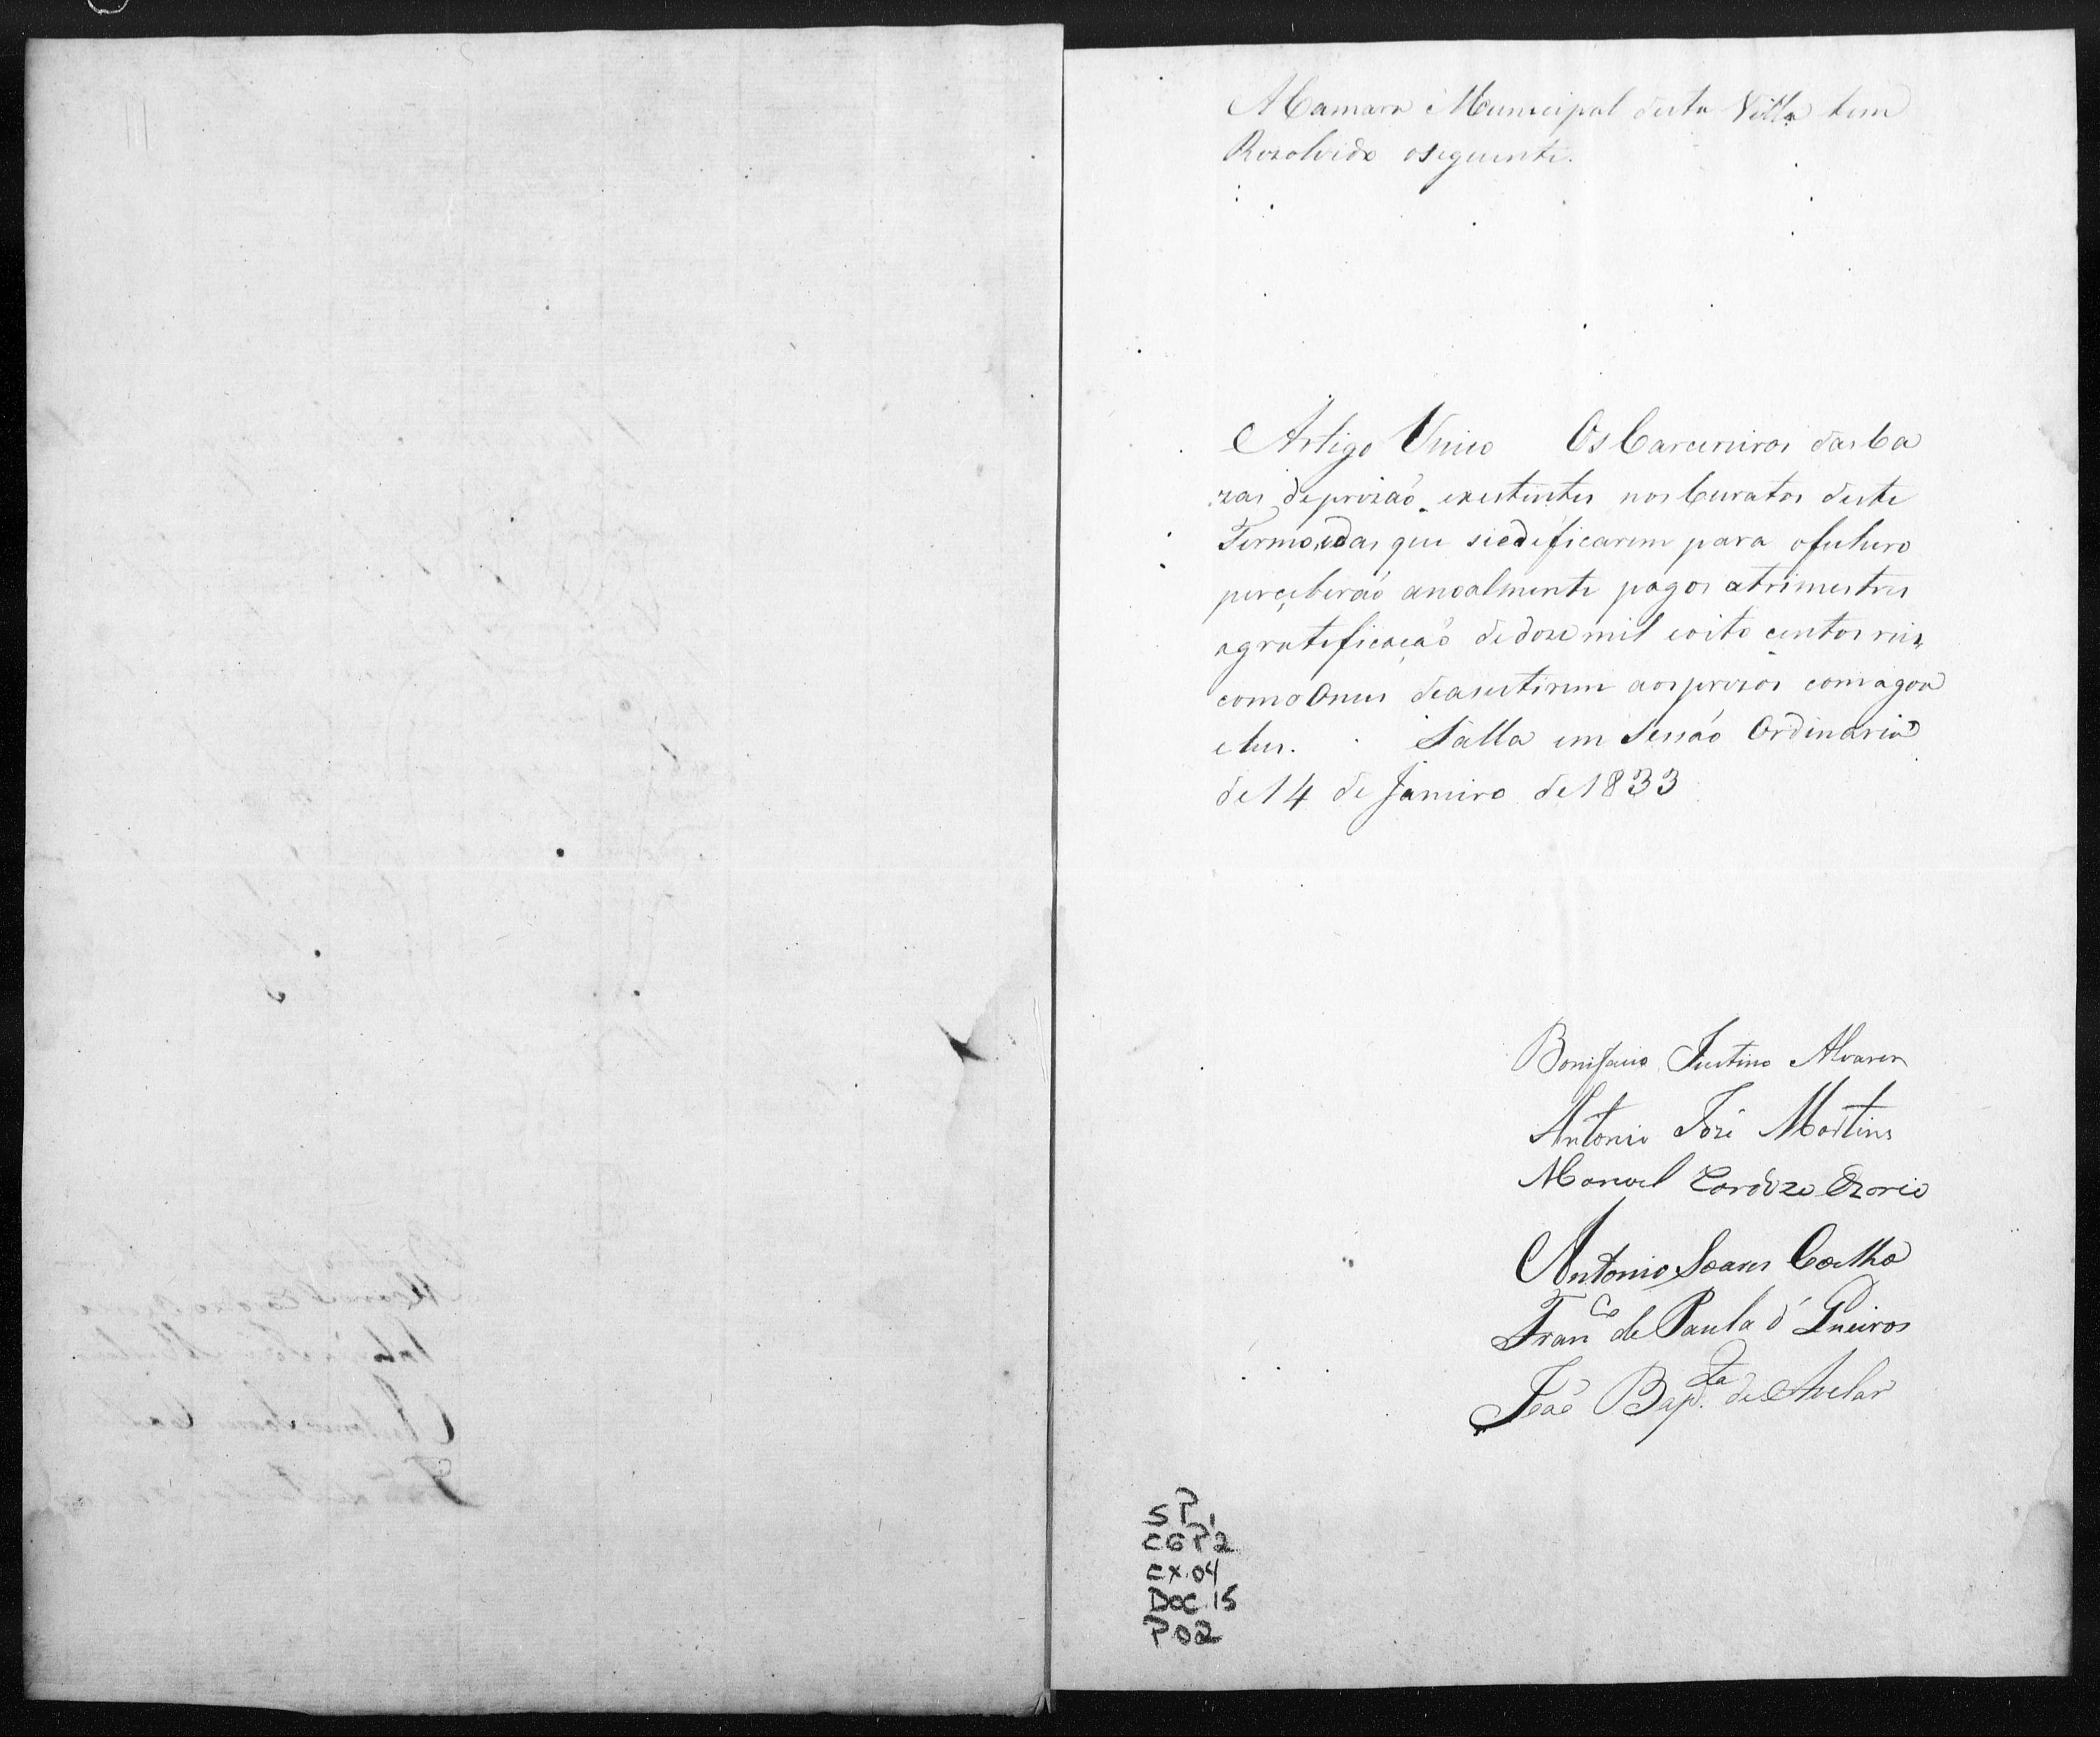 A Camara Municipal desta Villa tem
Rezolvido oseguinte.
Artigo Unico Os Carcereiros das Ca
zas deprizaõ existentes nos Curatos deste
Termo, edas que seedeficarem para ofuturo
perçeberaõ anoalmente pagos atrimestres
agrateficaçaõ dedoze mil eoito centos reis,
como Onus deasestirem aos prezos comagoa
elus. Salla em Sessaõ Ordinaria
de 14 de Janeiro de 1833
Bonifacio Justino Alvares
Antonio Jozé Martins
Manoel Cardozo Ozorio
Antonio Soares Coelho
Fran.co de Paula d'
Joaõ Bap.ta de Avelar
SP1
CGP2
CX.04
DOC.15
P02